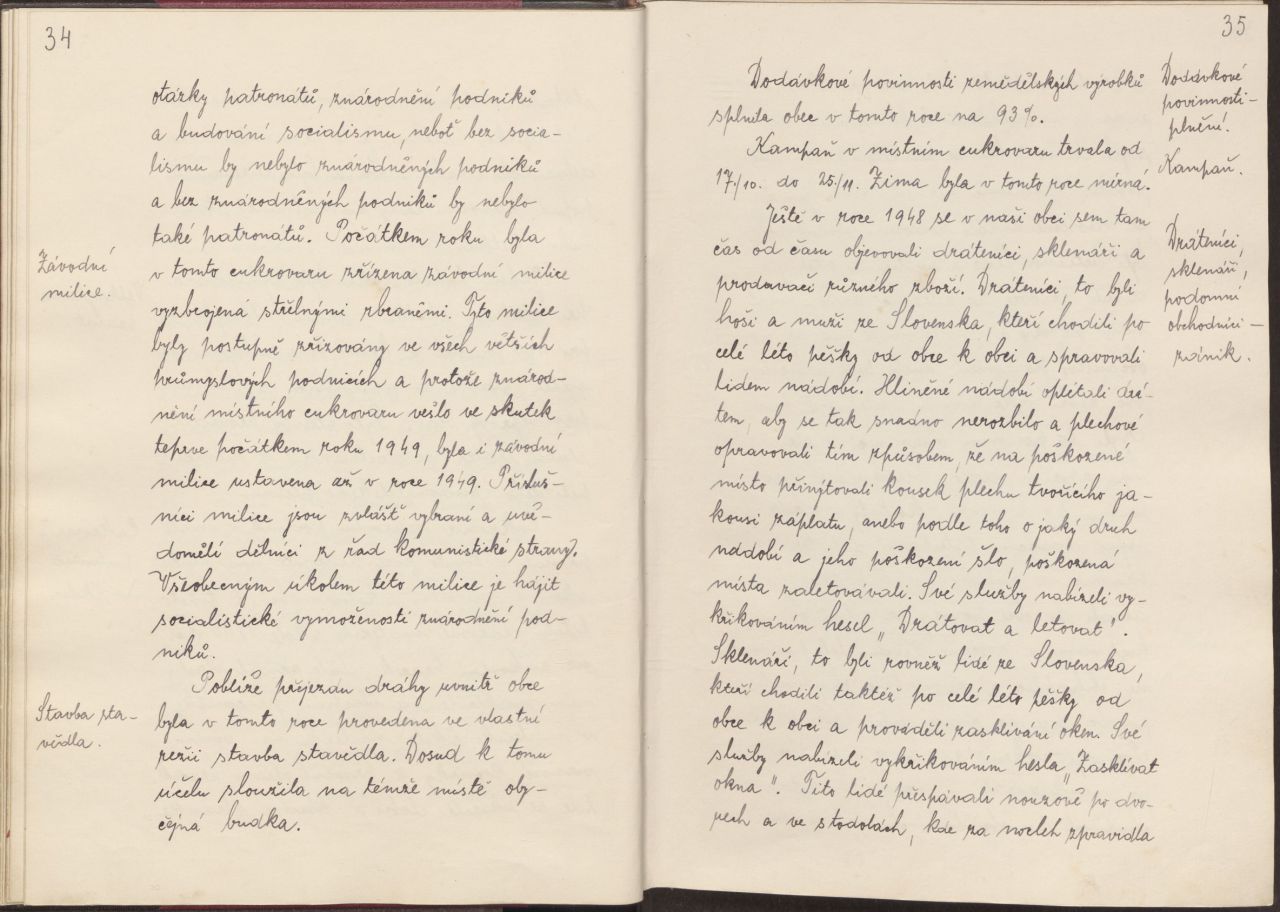 34
otázky patronátů, znárodnění podniků
a budování socialismu, neboť bez socia-
lismu by nebylo znárodněných podniků
a bez znárodněných podniků by nebylo
také patronátů. Počátkem roku byla
Závodní
milice.
v tomto cukrovaru zřízena závodní milice
vyzbrojená střelnými zbraněmi. Tyto milice
byly postupně zřizovány ve všech větších
průmyslových podnicích a protože znárod-
nění místního cukrovaru vešlo ve skutek
teprve počátkem roku 1949, byla i závodní
milice ustavena až v roce 1949. Přísluš-
níci milice jsou zvlášť vybraní a uvě-
domělí dělníci z řad komunistické strany.
Všeobecným úkolem této milice je hájit
socialistické vymoženosti znárodnění pod-
niků.
Poblíže příjezdu dráhy uvnitř obce
Stavba sta-
vědla.
byla v tomto roce provedena ve vlastní
režii stavba stavědla. Dosud k tomu
účelu sloužila na témže místě oby-
čejná budka.
35
Dodávkové povinnosti zemědělských výrobků
splnila obec v tomto roce na 93%.
Dodávkové
povinnosti-
plnění.
Kampaň v místním cukrovaru trvala od
17./10. do 25./11. Zima byla v tomto roce mírná.
Kampaň.
Ještě v roce 1948 se v naší obci sem tam
čas od času objevovali dráteníci, sklenáři a
prodavači různého zboží. Dráteníci, to byli
hoši a muži ze Slovenska, kteří chodili po
celé léto pěšky od obce k obci a spravovali
Dráteníci,
sklenáři,
podomní
obchodníci-
zánik.
lidem nádobí. Hliněné nádobí oplétali drá-
tem, aby se tak snadno nerozbilo a plechové
opravovali tím způsobem, že na poškozené
místo přinýtovali kousek plechu tvořícího ja-
kousi záplatu, anebo podle toho o jaký druh
nádobí a jeho poškození šlo, poškozená
místa zaletovávali. Své služby nabízeli vy-
křikováním hesel „Drátovat a letovat".
Sklenáři, to byli rovněž lidé ze Slovenska,
kteří chodili taktéž po celé léto pěšky od
obce k obci a prováděli zasklívání oken. Své
služby nabízeli vykřikováním hesla „Zasklívat
okna". Tito lidé přespávali nouzově po dvo-
rech a ve stodolách, kde za nocleh zpravidla